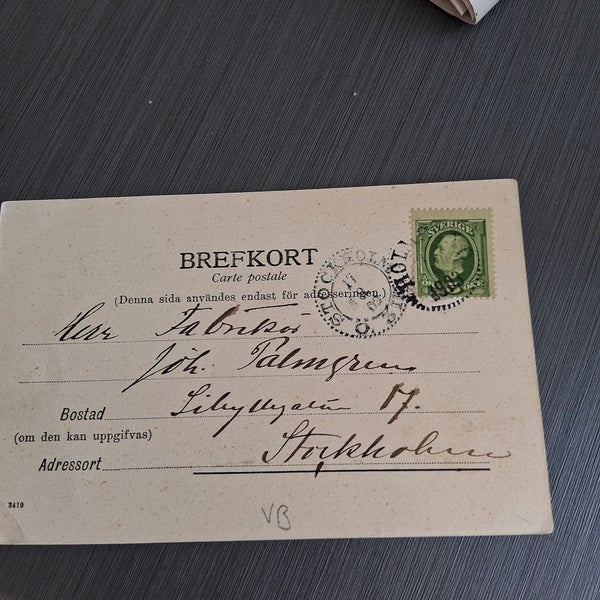 SVERIGE
BREFKORT
Carte postale
(Denna sida användes endast för adresseringen.)
STOCKHOLM
Herr Fabrikör
Joh. Palmgren
Bostad Sibyllegatan 17.
(om den kan uppgifvas)
Stockholm
Adressort
3419
VB